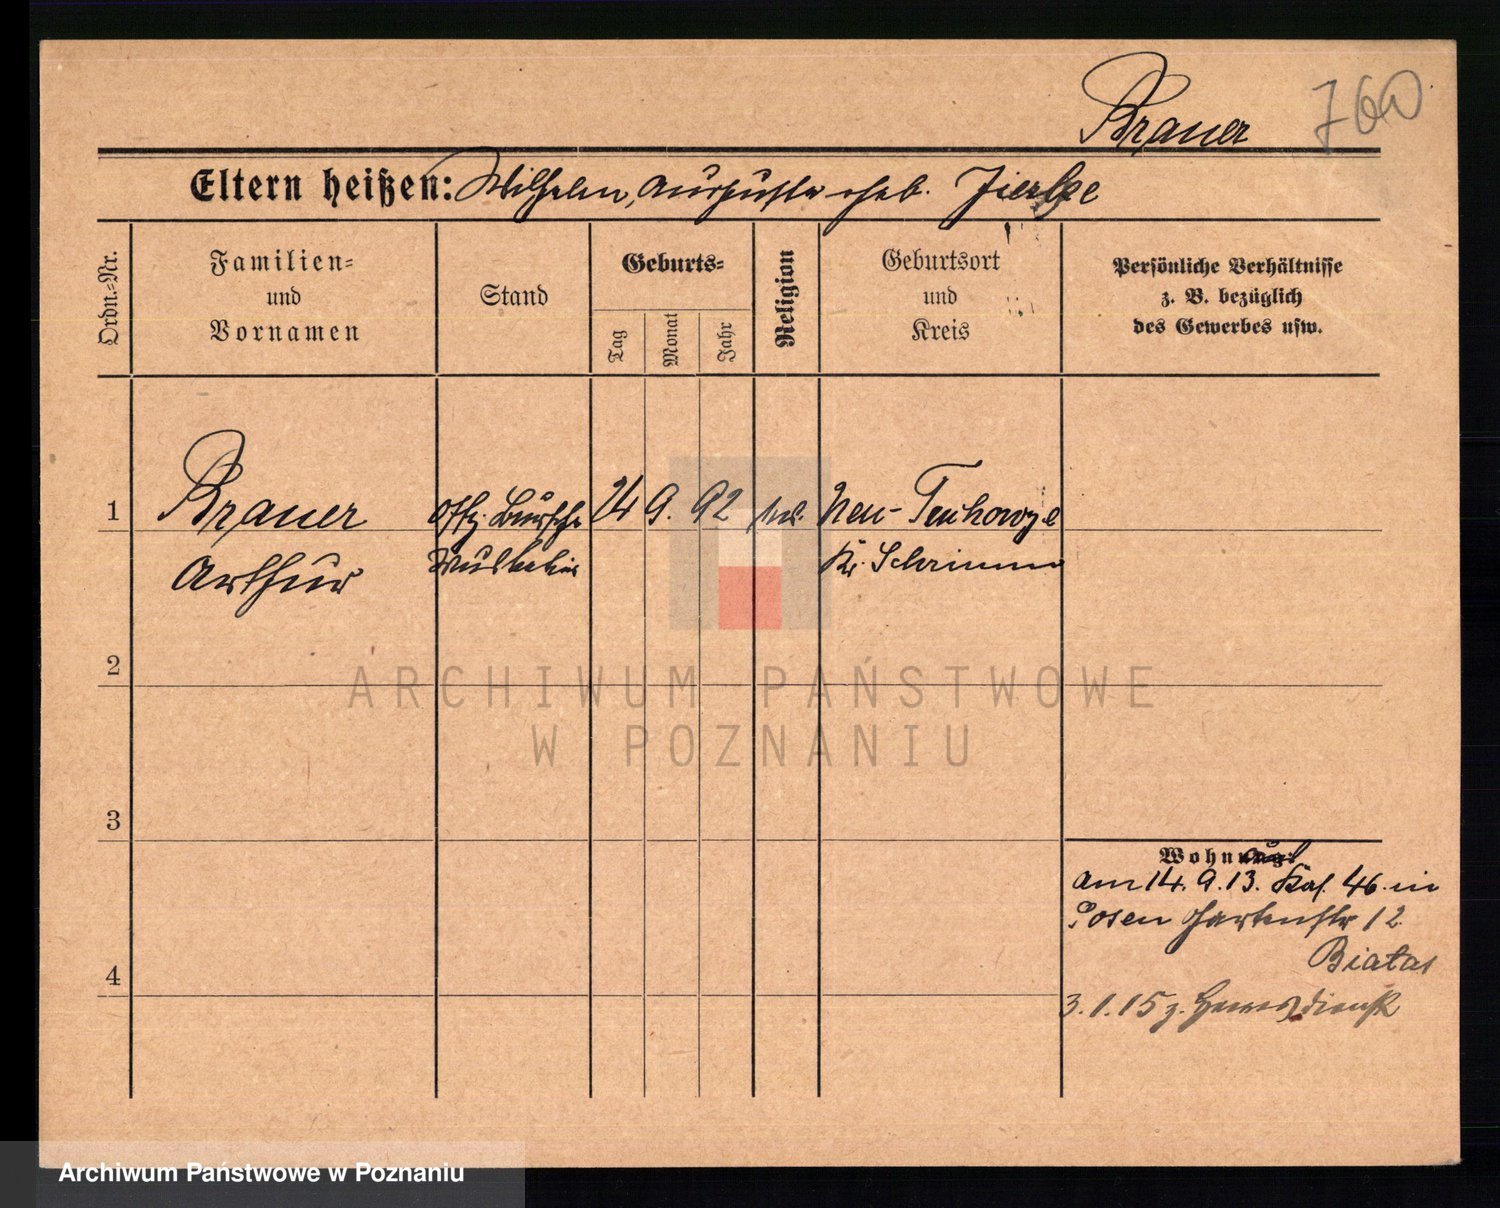 Brauer 760
Eltern heißen: Wilhelm, Auguste geb.
Ordn.-Nr.
Familien-
und
Vornamen
Stand
Geburts-
Tag
Monat
Jahr
Religion
Geburtsort
und
Kreis
Persönliche Verhältnisse
z. B. bezüglich
des Gewerbes usw.
1 Brauer Offz. Bursche 24 9. 92 Neu-
Arthur Kr. Schrimm
2
ARCHIWUM PAŃSTWOWE
W POZNANIU
3
Wohnung:
am 14. 9. 13. 46 in
Posen Gartenstr 12
4
3. 1. 15 z. Heeresdienst
Archiwum Państwowe w Poznaniu